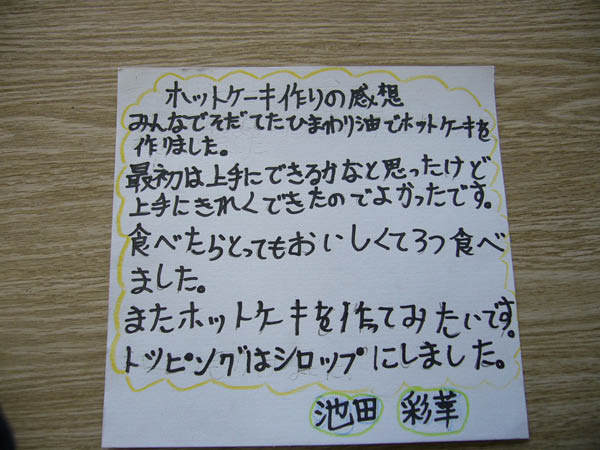 ホットケーキ作りの感想
みんなでそだてたひまわり油でホットケーキを
作りました。
最初は上手にできるかなと思ったけど
上手にきれくできたのでよかったです。
食べたらとってもおいしくて3つ食べ
ました。
またホットケーキを作ってみたいです。
トッピングはシロップにしました。
池田 彩華